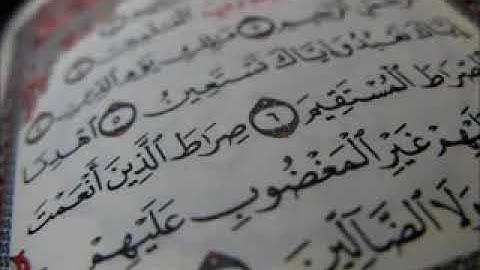 الرَّحْمَٰنِ الرَّحِيمِ ۝٣ مَٰلِكِ يَوْمِ الدِّينِ ۝٤
إِيَّاكَ نَعْبُدُ وَإِيَّاكَ نَسْتَعِينُ ۝٥ اهْدِنَا
الصِّرَٰطَ الْمُسْتَقِيمَ ۝٦ صِرَٰطَ الَّذِينَ أَنْعَمْتَ
عَلَيْهِمْ غَيْرِ الْمَغْضُوبِ عَلَيْهِمْ
وَلَا الضَّآلِّينَ